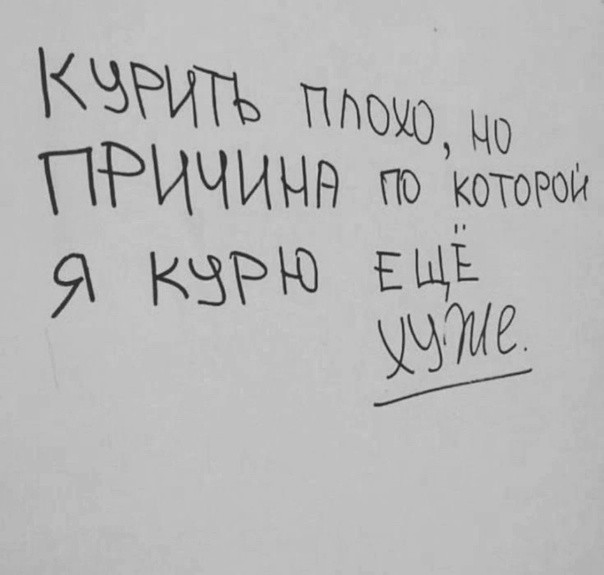 КУРИТЬ ПЛОХО, НО
ПРИЧИНА ПО КОТОРОЙ
Я КУРЮ ЕЩЁ
ХУЖЕ.